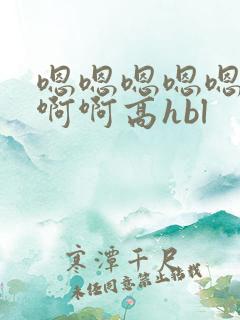 嗯嗯嗯嗯嗯
啊啊高hbl
寒潭千尺
未经同意禁止转载